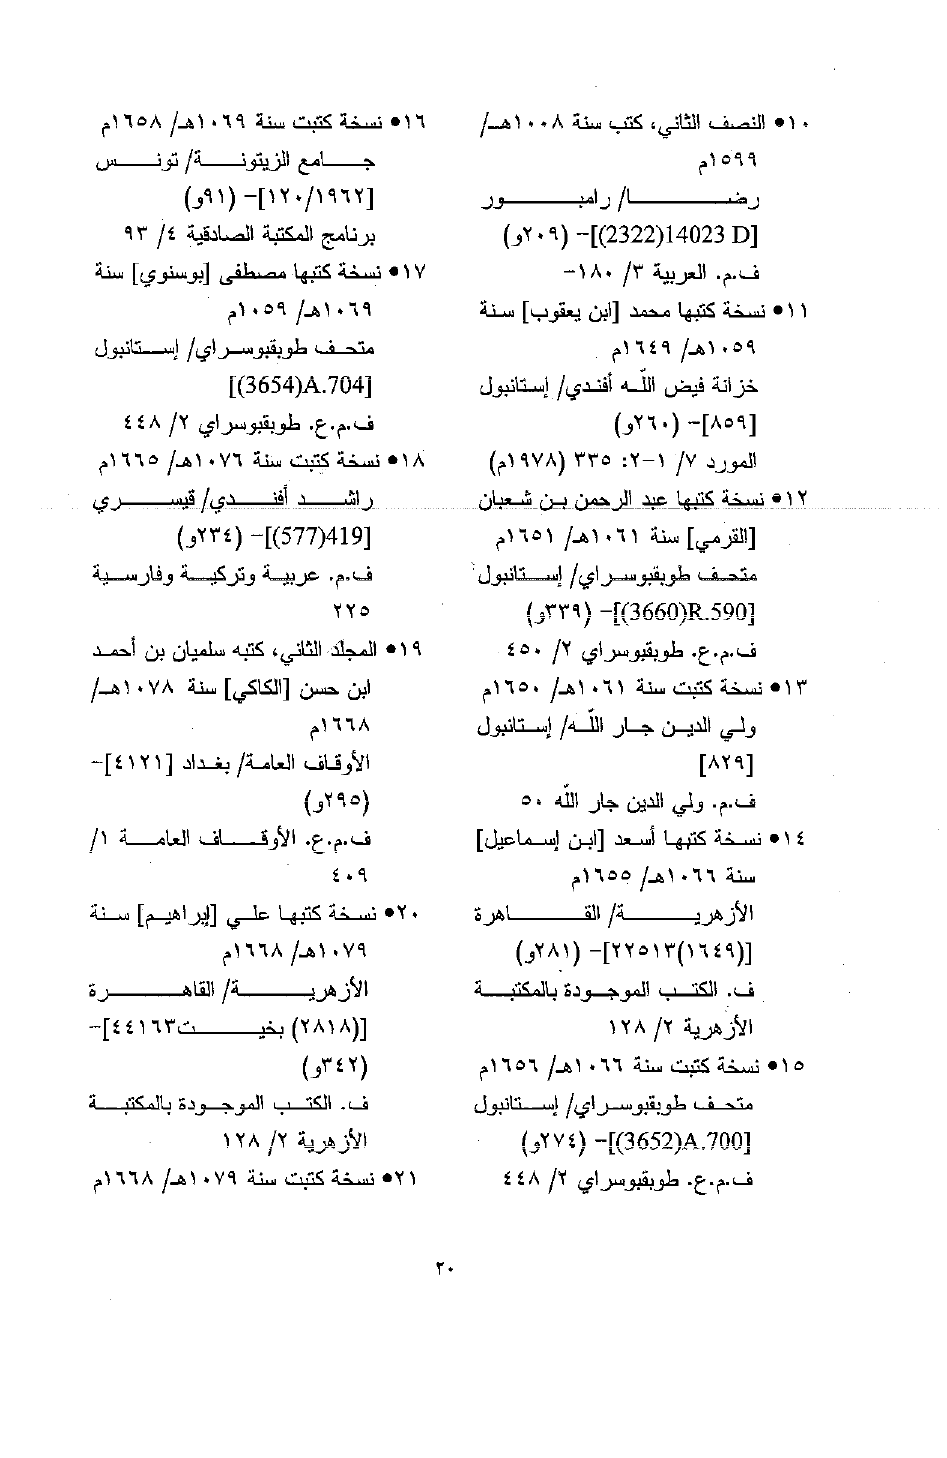 ١٠• النصف الثاني، كتب سنة ١٠٠٨هـ/
١٥٩٩م
رضا/ رامبور
[2322)14023 D)]- (٢٠٩و)
ف.م. العربية ٣/ ١٨٠-
١١• نسخة كتبها محمد [ابن يعقوب] سنة
١٠٥٩هـ/ ١٦٤٩م
خزانة فيض اللّه أفندي/ إستانبول
[٨٥٩]- (٢٦٠و)
المورد ٧/ ١-٢: ٣٣٥ (١٩٧٨م)
١٢• نسخة كتبها عبد الرحمن بن شعبان
[القرمي] سنة ١٠٦١هـ/ ١٦٥١م
متحف طوبقبوسراي/ إستانبول
[3660)R.590)]- (٣٣٩و)
ف.م.ع. طوبقبوسراي ٢/ ٤٥٠
١٣• نسخة كتبت سنة ١٠٦١هـ/ ١٦٥٠م
ولي الدين جار اللّه/ إستانبول
[٨٢٩]
ف.م. ولي الدين جار اللّه ٥٠
١٤• نسخة كتبها أسعد [ابن إسماعيل]
سنة ١٠٦٦هـ/ ١٦٥٥م
الأزهرية/ القاهرة
[(١٦٤٩)٢٢٥١٣]- (٢٨١و)
ف. الكتب الموجودة بالمكتبة
الأزهرية ٢/ ١٢٨
١٥• نسخة كتبت سنة ١٠٦٦هـ/ ١٦٥٦م
متحف طوبقبوسراي/ إستانبول
[3652)A.700)]- (٢٧٤و)
ف.م.ع. طوبقبوسراي ٢/ ٤٤٨
١٦• نسخة كتبت سنة ١٠٦٩هـ/ ١٦٥٨م
جامع الزيتونة/ تونس
[١٢٠/١٩٦٢]- (٩١و)
برنامج المكتبة الصادقية ٤/ ٩٣
١٧• نسخة كتبها مصطفى [بوسنوي] سنة
١٠٦٩هـ/ ١٠٥٩م
متحف طوبقبوسراي/ إستانبول
[3654)A.704)]
ف.م.ع. طوبقبوسراي ٢/ ٤٤٨
١٨• نسخة كتبت سنة ١٠٧٦هـ/ ١٦٦٥م
راشد أفندي/ قيسري
[577)419)]- (٢٣٤و)
ف.م. عربية وتركية وفارسية
٢٢٥
١٩• المجلد الثاني، كتبه سلميان بن أحمد
ابن حسن [الكاكي] سنة ١٠٧٨هـ/
١٦٦٨م
الأوقاف العامة/ بغداد [٤١٢١]-
(٢٩٥و)
ف.م.ع. الأوقاف العامة ١/
٤٠٩
٢٠• نسخة كتبها علي [إبراهيم] سنة
١٠٧٩هـ/ ١٦٦٨م
الأزهرية/ القاهرة
[(٢٨١٨) بخيت٤٤١٦٣]-
(٣٤٢و)
ف. الكتب الموجودة بالمكتبة
الأزهرية ٢/ ١٢٨
٢١• نسخة كتبت سنة ١٠٧٩هـ/ ١٦٦٨م
٢٠